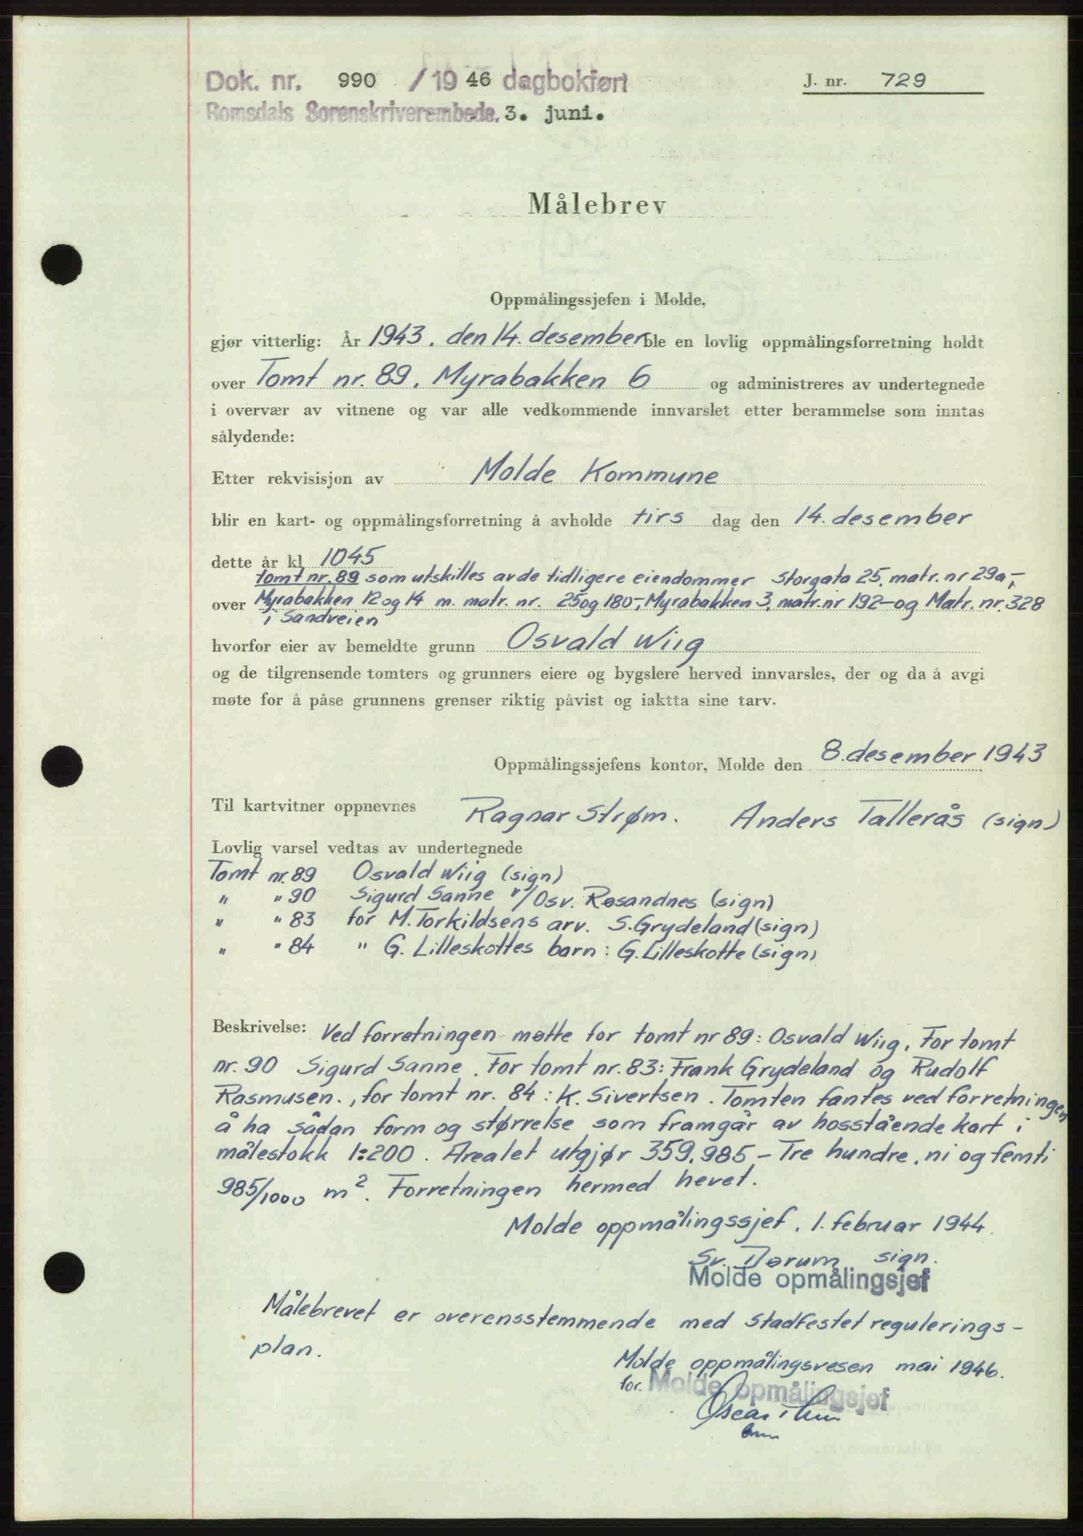 Dok. nr. 990 / 19 46 dagbokført
J. nr. 729
Romsdals Sorenskriverembede, 3. juni.
Målebrev
Oppmålingssjefen i Molde,
gjør vitterlig: År 1943, den 14. desember ble en lovlig oppmålingsforretning holdt
over Tomt nr. 89, Myrabakken 6 og administreres av undertegnede
i overvær av vitnene og var alle vedkommende innvarslet etter berammelse som inntas
sålydende:
Etter rekvisisjon av Molde Kommune
blir en kart- og oppmålingsforretning å avholde tirs dag den 14. desember
dette år kl 1045
tomt nr. 89 som utskilles av de tidligere eiendommer Storgata 25, matr. nr 29a,-
over Myrabakken 12 og 14 m. matr. nr. 25 og 180-, Myrabakken 3, matr. nr 192- og Matr. nr. 328
i Sandveien
hvorfor eier av bemeldte grunn Osvald Wiig
og de tilgrensende tomters og grunners eiere og bygslere herved innvarsles, der og da å avgi
møte for å påse grunnens grenser riktig påvist og iaktta sine tarv.
Oppmålingssjefens kontor, Molde den 8. desember 1943
Til kartvitner oppnevnes Ragnar Strøm. Anders Tallerås (sign)
Lovlig varsel vedtas av undertegnede
Tomt nr. 89 Osvald Wiig (sign)
" " 90 Sigurd Sanne v/Osv. Røsandnes (sign)
" " 83 for M. Torkildsens arv. S. Grydeland (sign)
" " 84 " G. Lilleskottes barn: G. Lilleskotte (sign)
Beskrivelse: Ved forretningen møtte for tomt nr 89: Osvald Wiig, For tomt
nr. 90 Sigurd Sanne. For tomt nr. 83: Frank Grydeland og Rudolf
Rasmusen., for tomt nr. 84: K. Sivertsen. Tomten fantes ved forretningen
å ha sådan form og størrelse som framgår av hosstående kart i
målestokk 1:200. Arealet utgjør 359,985 - Tre hundre, ni og femti
985/1000 m². Forretningen hermed hevet.
Molde oppmålingssjef, 1. februar 1944.
Sv. Dørum sign.
Molde opmålingsjef
Målebrevet er overensstemmende med stadfestet regulerings-
plan.
Molde oppmålingsvesen mai 1946.
for. Molde opmålingsjef
Oscar